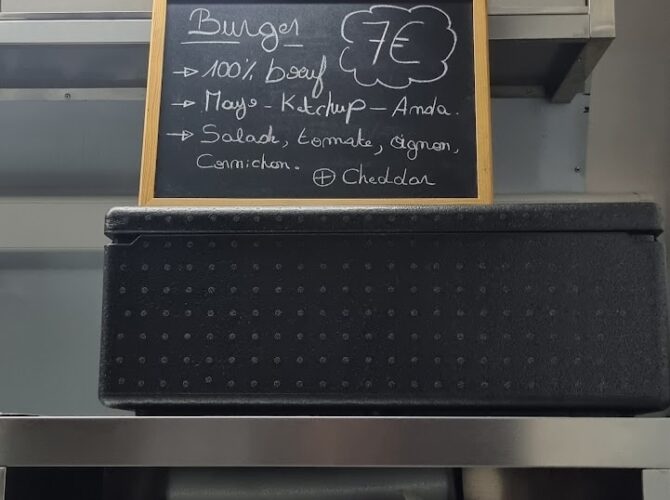 Burger
7€
→ 100% bœuf
→ Mayo - Ketchup - Anda.
→ Salade, tomate, oignon,
Cornichon.
⊕ Cheddar